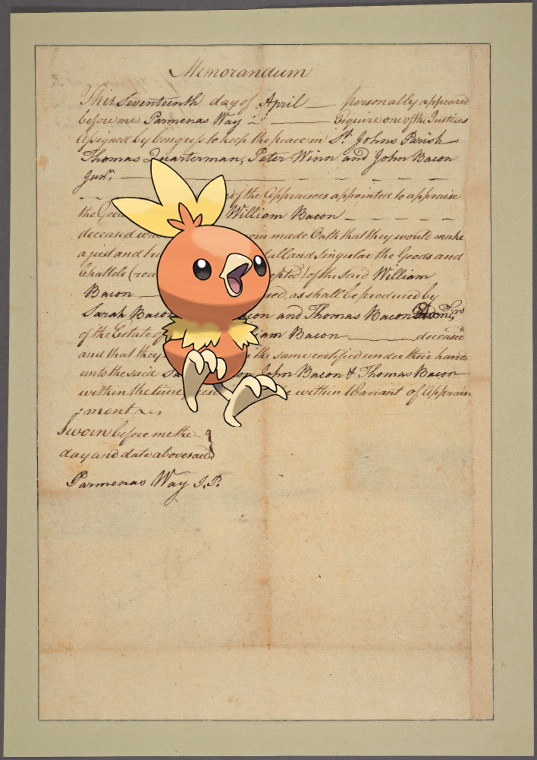 Memorandum
This Seventeenth day of April personally appeared
before me Parmenas Way Esquire one of the Justices
assigned by Congress to keep the peace in St. Johns Parish
Thomas Quarterman, Peter Winn and John Bacon
Junr.
of the Appraisors appointed to appraise
the William Bacon
deceased made Oath that they would make
a just and and Singular the Goods and
Chattels of the said William
Bacon as shall be produced by
Sarah Bacon and Thomas Bacon
of the Estate deceased
and that they the same certified under their hands
unto the said John Bacon & Thomas Bacon
within the time within Warrant of Apprais-
ment
Sworn before me the
day and date abovesaid
Parmenas Way J.P.